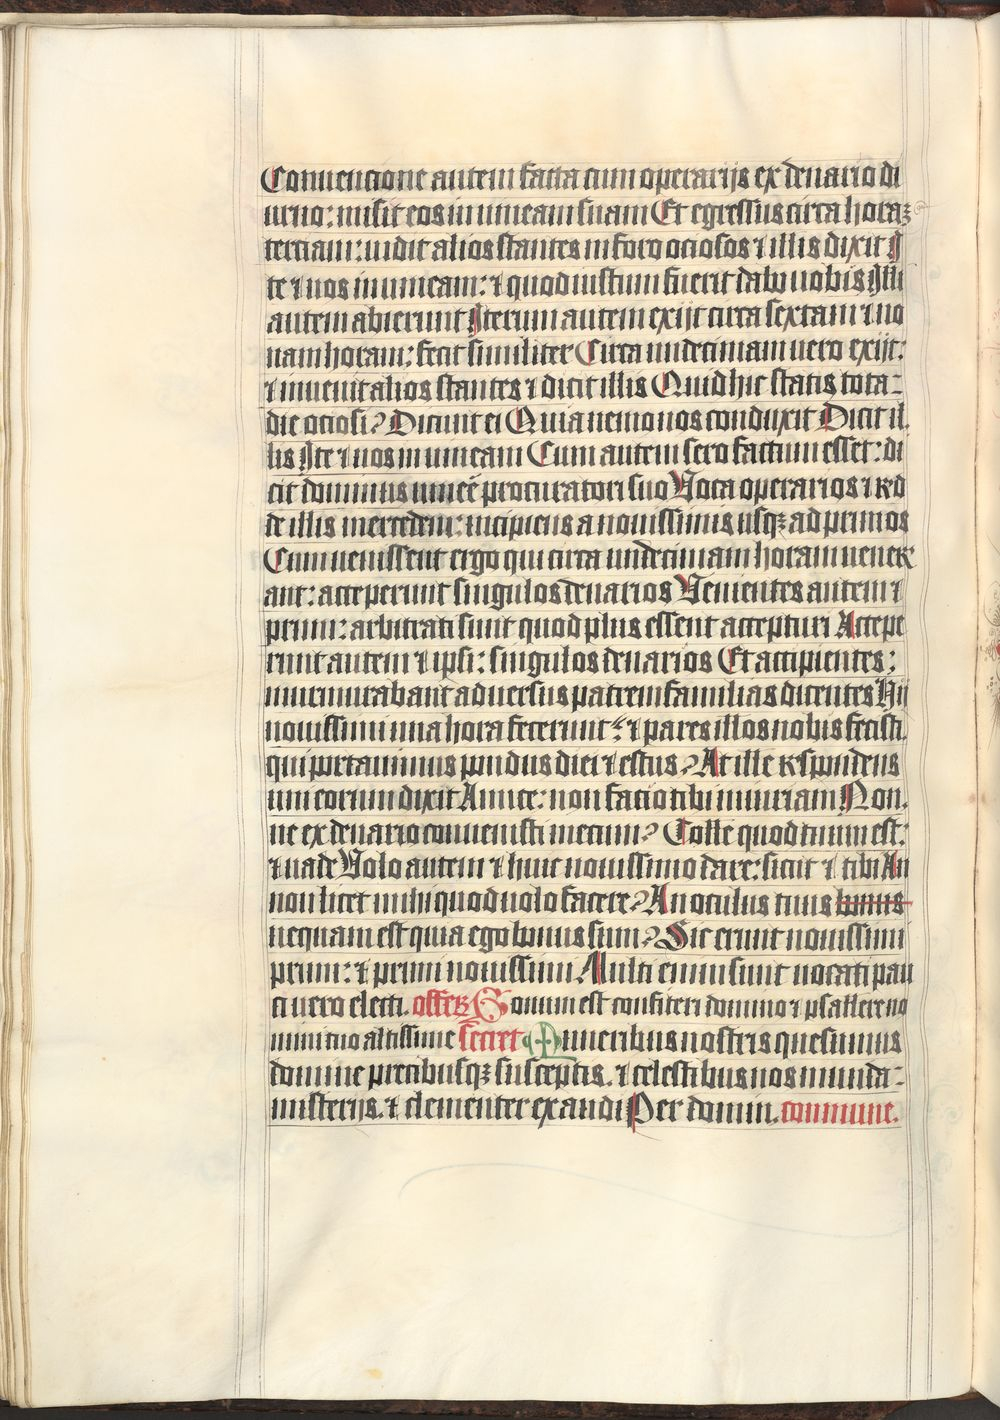 Conuencione autem facta cum operarijs ex denario di
urno: misit eos in uineam suam Et egressus circa horaꝫ
terciam: uidit alios stantes in foro ociosos ⁊ illis dixit I
te ⁊ uos in uineam: ⁊ quod iustum fuerit dabo uobis Illi
autem abierunt Iterum autem exijt circa sextam ⁊ no
nam horam: fecit similiter Circa undecimam uero exijt:
⁊ inuenit alios stantes ⁊ dicit illis Quid hic statis tota
die ociosi? Dicunt ei Quia nemo nos conduxit Dicit il
lis Ite ⁊ uos in uineam Cum autem sero factum esset: di
cit dominus uineē procuratori suo Uoca operarios ⁊ red
de illis mercedem: incipiens a nouissimis usqꝫ ad primos
Cum uenissent ergo qui circa undecimam horam uener
ant: acceperunt singulos denarios Uenientes autem ⁊
primi: arbitrati sunt quod plus essent accepturi Accepe
runt autem ⁊ ipsi: singulos denarios Et accipientes:
murmurabant aduersus patrem familias dicentes Hij
nouissimi una hora fecerunt: ⁊ pares illos nobis fecisti
qui portauimus pondus diei ⁊ estus? At ille respondens
uni eorum dixit Amice: non facio tibi iniuriam Non
ne ex denario conuenisti mecum? Tolle quod tuum est:
⁊ uade Uolo autem ⁊ huic nouissimo dare: sicut ⁊ tibi An
non licet mihi quod uolo facere? An oculus tuus bonus
nequam est quia ego bonus sum? Sic erunt nouissimi
primi: ⁊ primi nouissimi Multi enim sunt uocati pau
ci uero electi. offerꝫ Bonum est confiteri domino ⁊ psallere no
mini tuo altissime secret Muneribus nostris quesumus
domine precibusqꝫ susceptis. ⁊ celestibus nos munda
misterijs. ⁊ clementer exaudi Per domin. commune.